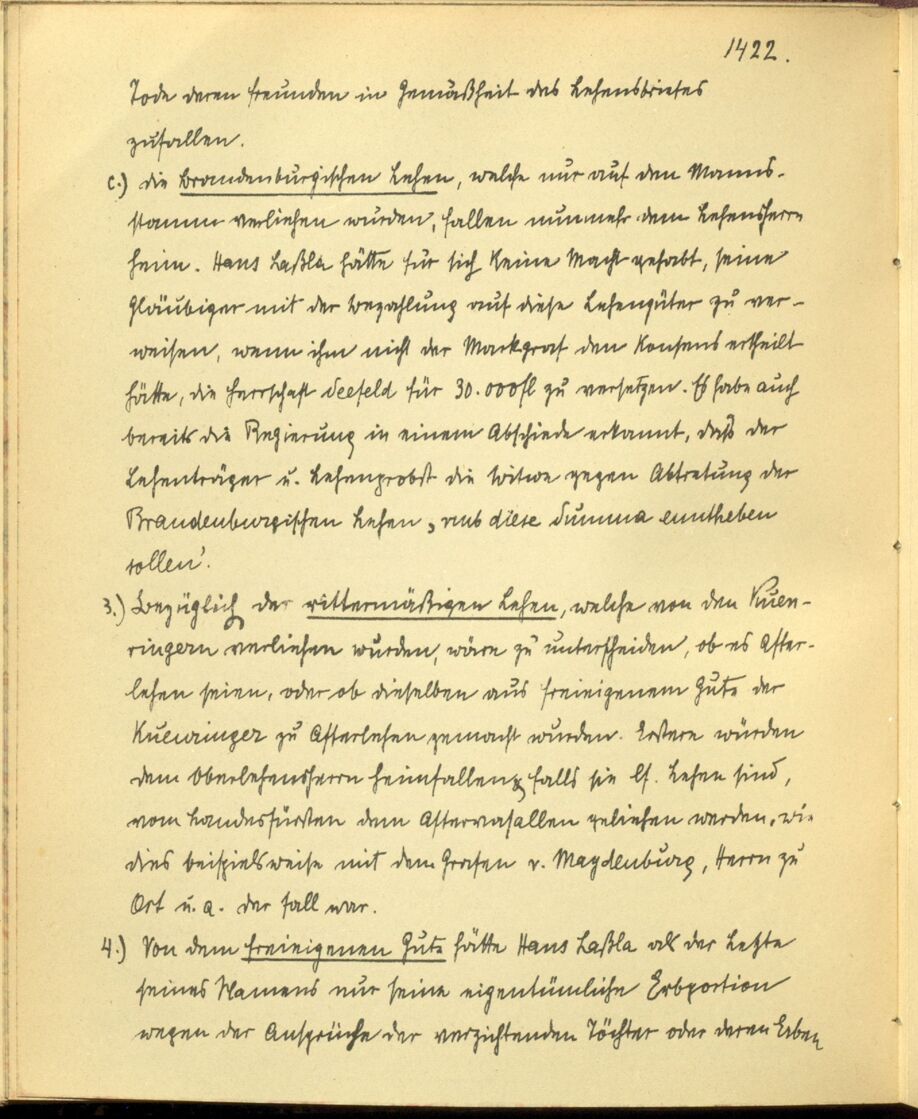 1422.
Tode deren Freunden in Gemäßheit des Lehensbriefes
zufallen.
c.) die Brandenburgischen Lehen, welche nur auf den Manns-
stamm verliehen wurden, fallen nunmehr dem Lehensherrn
heim. Hans Laßla hätte für sich keine Macht gehabt, seine
Gläubiger mit der Bezahlung auf diese Lehengüter zu ver-
weisen, wenn ihm nicht der Markgraf den Konsens ertheilt
hätte, die Herrschaft Seefeld für 30.000fl zu versetzen. Es habe auch
bereits die Regierung in einem Abschiede erkannt, daß der
Lehenträger u. Lehenprobst die Witwe gegen Abtretung der
Brandenburgischen Lehen „umb diese Summa enntheben
sollen'.
3.) Bezüglich der rittermäßigen Lehen, welche von den Kuen-
ringern verliehen wurden, wäre zu unterscheiden, ob es After-
lehen seien, oder ob dieselben aus freieigenem Gute der
Kuenringer zu Afterlehen gemacht wurden. Erstere würden
dem Oberlehensherrn heimfallen, falls sie lf. Lehen sind,
vom Landesfürsten dem Aftervasallen geliehen werden, wie
dies beispielsweise mit dem Grafen v. Maydenburg, Herrn zu
Ort u. a. der Fall war.
4.) Von dem freieigenen Gute hätte Hans Laßla als der Letzte
seines Namens nur seine eigentümliche Erbportion
wegen der Ansprüche der verzichtenden Töchter oder deren Erben